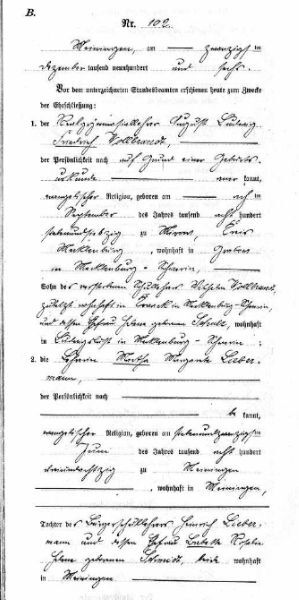 B.
Nr. 102.
Meiningen, am zwanzigsten
Dezember tausend neunhundert und sechs.
Vor dem unterzeichneten Standesbeamten erschienen heute zum Zwecke
der Eheschließung:
1. der Realgymnasiallehrer August Ludwig
Friedrich Vollbrandt,
der Persönlichkeit nach auf Grund einer Geburts-
urkunde kannt,
evangelischer Religion, geboren am
September des Jahres tausend acht hundert
zu
Mecklenburg, wohnhaft in Grabow
in Mecklenburg-Schwerin,
Sohn des verstorbenen Schullehrers Wilhelm Vollbrandt,
zuletzt wohnhaft in in Mecklenburg-Schwerin,
und dessen Ehefrau geborenen Schult, wohnhaft
in Ludwigslust in Mecklenburg-Schwerin;
2. die Martha Margarete Lieber-
mann,
der Persönlichkeit nach
be kannt,
evangelischer Religion, geboren am
Juni des Jahres tausend acht hundert
dreiundachtzig zu Meiningen
, wohnhaft in Meiningen,
Tochter des Bürgerschullehrers Heinrich Lieber-
mann und dessen Ehefrau Babette
geborenen Schmidt, beide wohnhaft
in Meiningen